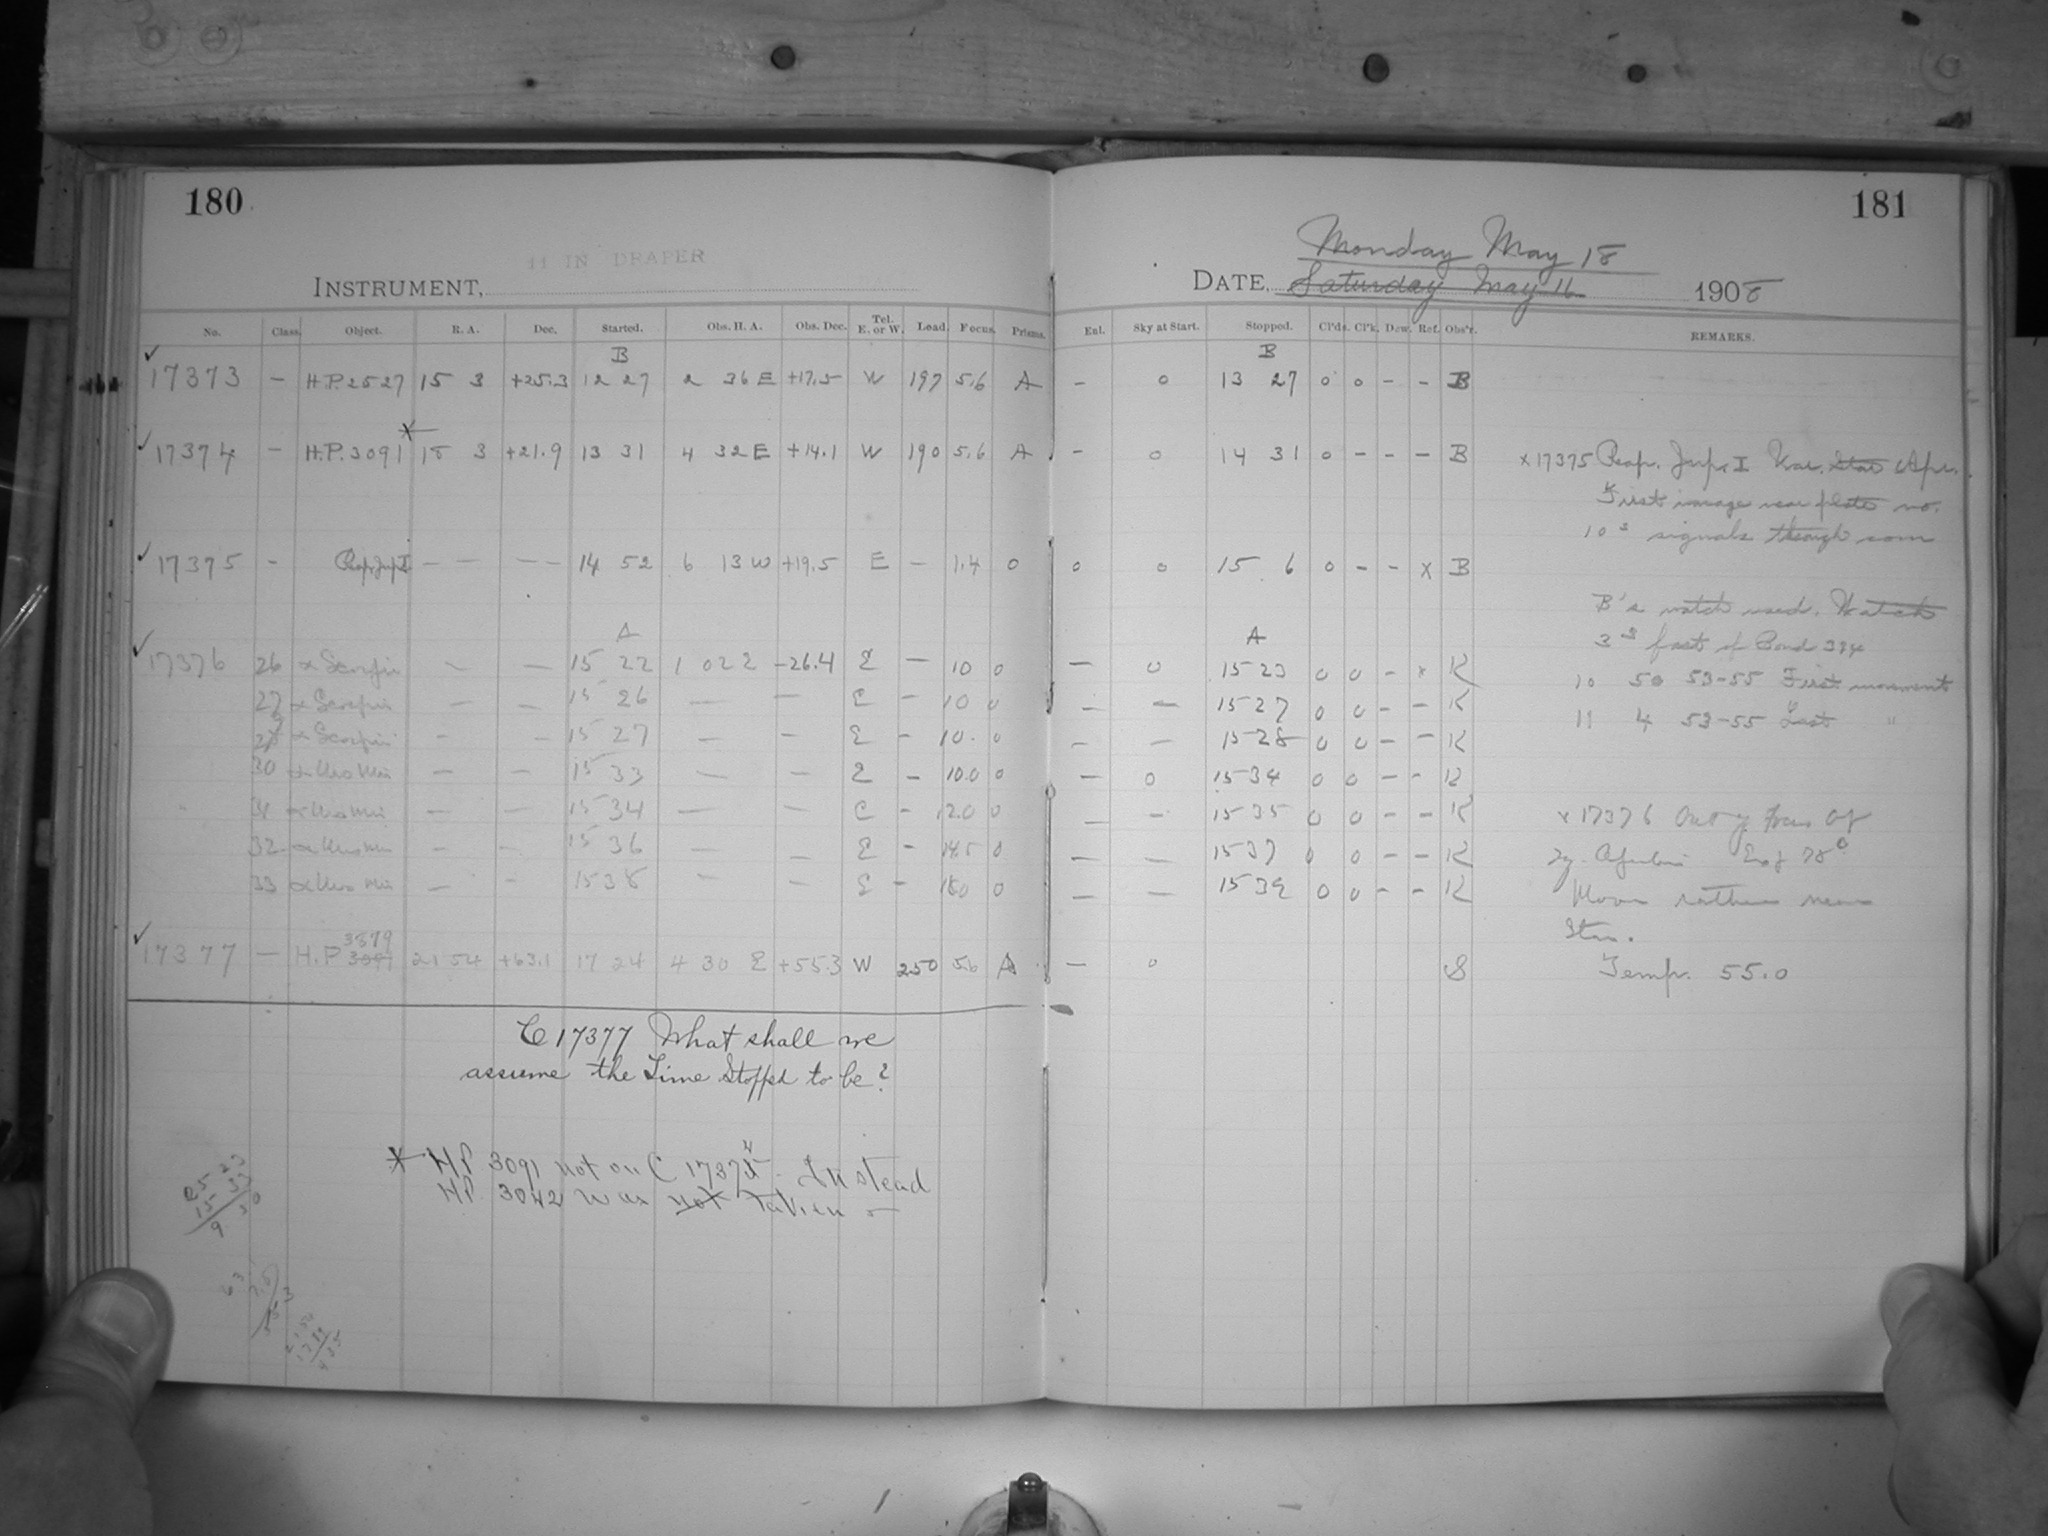 180
11 IN DRAPER
INSTRUMENT,
No. Class. Object. R. A. Dec. Started. Obs. H. A. Obs. Dec. Tel. E. or W. Load. Focus. Prisms.
B
17373 — H.P. 2527 15 3 +25.3 12 27 2 36 E +17.5 W 197 5.6 A
17374 — H.P. 3091 18 3 +21.9 13 31 4 32 E +14.1 W 190 5.6 A
17375 - — — — — 14 52 6 13 W +19.5 E — 1.4 0
A
17376 26 α Scorpii — — 15 22 1 02 E -26.4 E — 10 0
27 α Scorpii — — 15 26 — — E — 10 0
α Scorpii — — 15 27 — — E — 10. 0
30 — — 15 33 — — E — 10.0 0
31 — — 15 34 — — E — 12.0 0
32 — — 15 36 — — E — 14.5 0
33 — — 15 38 — — E — 0
17377 — H.P. 3879 3091 21 54 +63.1 17 24 4 30 E +55.3 W 250 5.6 A
C 17377 What shall we
assume the Time Stopped to be?
X HP 3091 not on C 17374. Instead
HP. 3042 was not taken —
181
Monday May 18
DATE, Saturday May 16 1908
Enl. Sky at Start. Stopped. Cl'ds. Cl'k. Dew. Ref. Obs'r. REMARKS.
B
— 0 13 27 0 0 - - B
— 0 14 31 0 - - - B
0 0 15 6 0 - - x B
A
— 0 15 23 0 0 - x K
— — 15 27 0 0 - - K
— — 15 28 0 0 - - K
— 0 15 34 0 0 - - K
— — 15 35 0 0 - - K
— — 15 37 0 0 - - K
— — 15 39 0 0 - - K
— 0 S
x 17375 Jup. I
First image near plate no.
10 s signals through
B's watch used. Watch
3 s fast of Bond 394
10 50 53-55 First movement
11 4 53-55 Last "
x 17376 Out of Focus
Moon rather near
Star.
Temp. 55.0